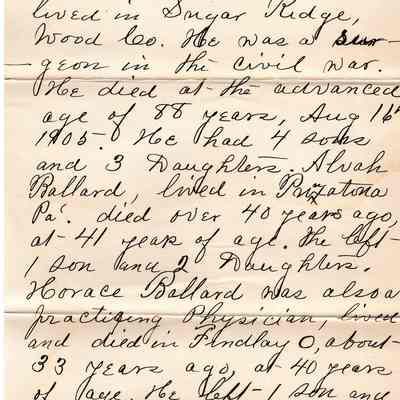 lived in Sugar Ridge,
Wood Co. He was a sur-
geon in the civil war.
He died at the advanced
age of 88 years, Aug 16th
1905. He had 4 sons
and 3 Daughters. Alvah
Ballard, lived in
Pa. died over 40 years ago,
at 41 years of age. The left
1 son and 2 Daughters.
Horace Ballard was also a
practising Physician, lived
and died in Findlay O, about
33 years ago, at 40 years
of age. He left 1 son and